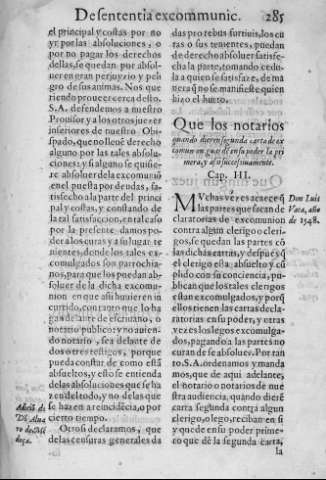 De sententia excommunic. 285
el principal y costas por no
yr por las absoluciones, o
por no pagar los derechos
dellas, se quedan por absol-
uer en gran perjuyzio y peli
gro de sus animas. Nos que
riendo proueer cerca desto.
S.A. defendemos a nuestro
Prouisor y a los otros juezes
inferiores de nuestro Obi-
spado, que no lleuē derecho
alguno por las tales absolu-
ciones: y si alguno se quisie-
re absoluer dela excomuniō
en el puesta por deudas, sa-
tisfecho ala parte del princi
pal y costas, y constando de
la tal satisfacion, en tal caso
por la presente damos po-
der alos curas y a su lugar te
nientes, donde los tales ex-
comulgados son parrochia-
nos, para que los puedan ab-
soluer de la dicha excomu-
nion en que assi huuieren in
currido, con tanto que lo ha
gan delante de escriuano, o
notario publico: y no auien-
do notario, sea delante de
dos o tres testigos, porque
pueda constar de como está
absueltos, y esto se entienda
delas absoluciones que se ha
zen del todo, y no delas que
se hazen a reincidēcia, o por
cierto tiempo.
Otrosi declaramos, que
de las censuras generales da
das pro rebus furtiuis, los cu
ras o sus tenientes, puedan
de derecho absoluer satisfe-
cha la parte, tomando cedu-
la a quien se satisfaze, de ma
nera q̃ no se manifieste quien
hizo el hurto.
Que los notarios
quando dieren segunda carta de ex
comunion guarden en su poder la pri
mera, y assi successiuamente.
Cap. III.
MVchas vezes acaece q̃
las partes que sacan de
claratorias de excomunion
contra algun clerigo o cleri-
gos, se quedan las partes cō
las dichas cartas, y despues q̃
el clerigo está absuelto y cū
plido con su conciencia, pu-
blican que los tales clerigos
estan excomulgados, y porq̃
ellos tienen las cartas decla-
ratorias en su poder, y otras
vezes los legos excomulga-
dos, pagando a las partes no
curan de se absoluer. Por tan
to S.A. ordenamos y manda
mos, que de aqui adelante,
el notario o notarios de nue
stra audiencia, quando dierē
carta segunda contra algun
clerigo, o lego, reciban en si
y quede en su poder prime-
ro que dē la segunda carta,
la
Don Luis
Vaca, año
de 1548.